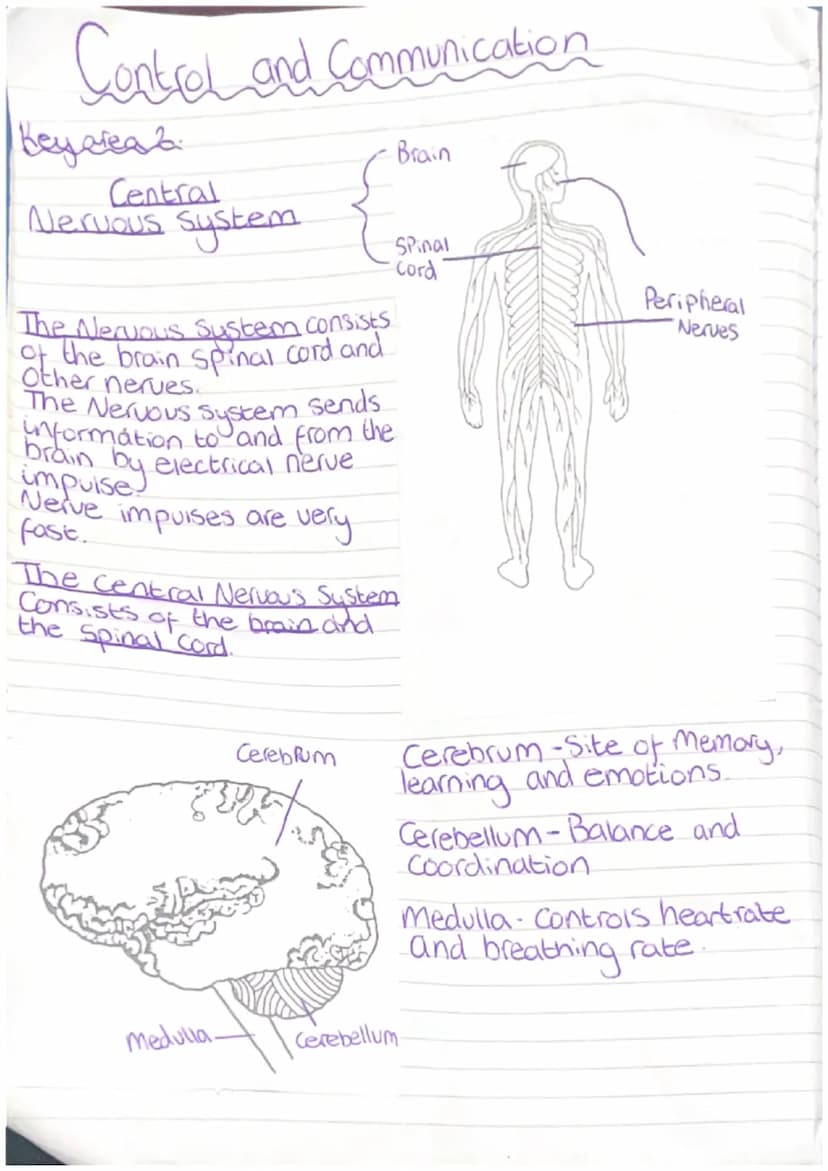 Control and Communication
Key area 2:
Central
Nervous System
Brain
Spinal
Cord
Peripheral
Nerves
The Nervous System consists
of the brain spinal cord and
other nerves.
The Nervous system sends
information to and from the
brain by electrical nerve
impulse
Nerve impulses are very
fast.
The Central Nervous System
Consists of the brain and
the Spinal Cord.
Cerebrum
Medulla
Cerebellum
Cerebrum - Site of Memory,
learning and emotions.
Cerebellum - Balance and
Coordination
Medulla - Controls heartrate
and breathing rate.